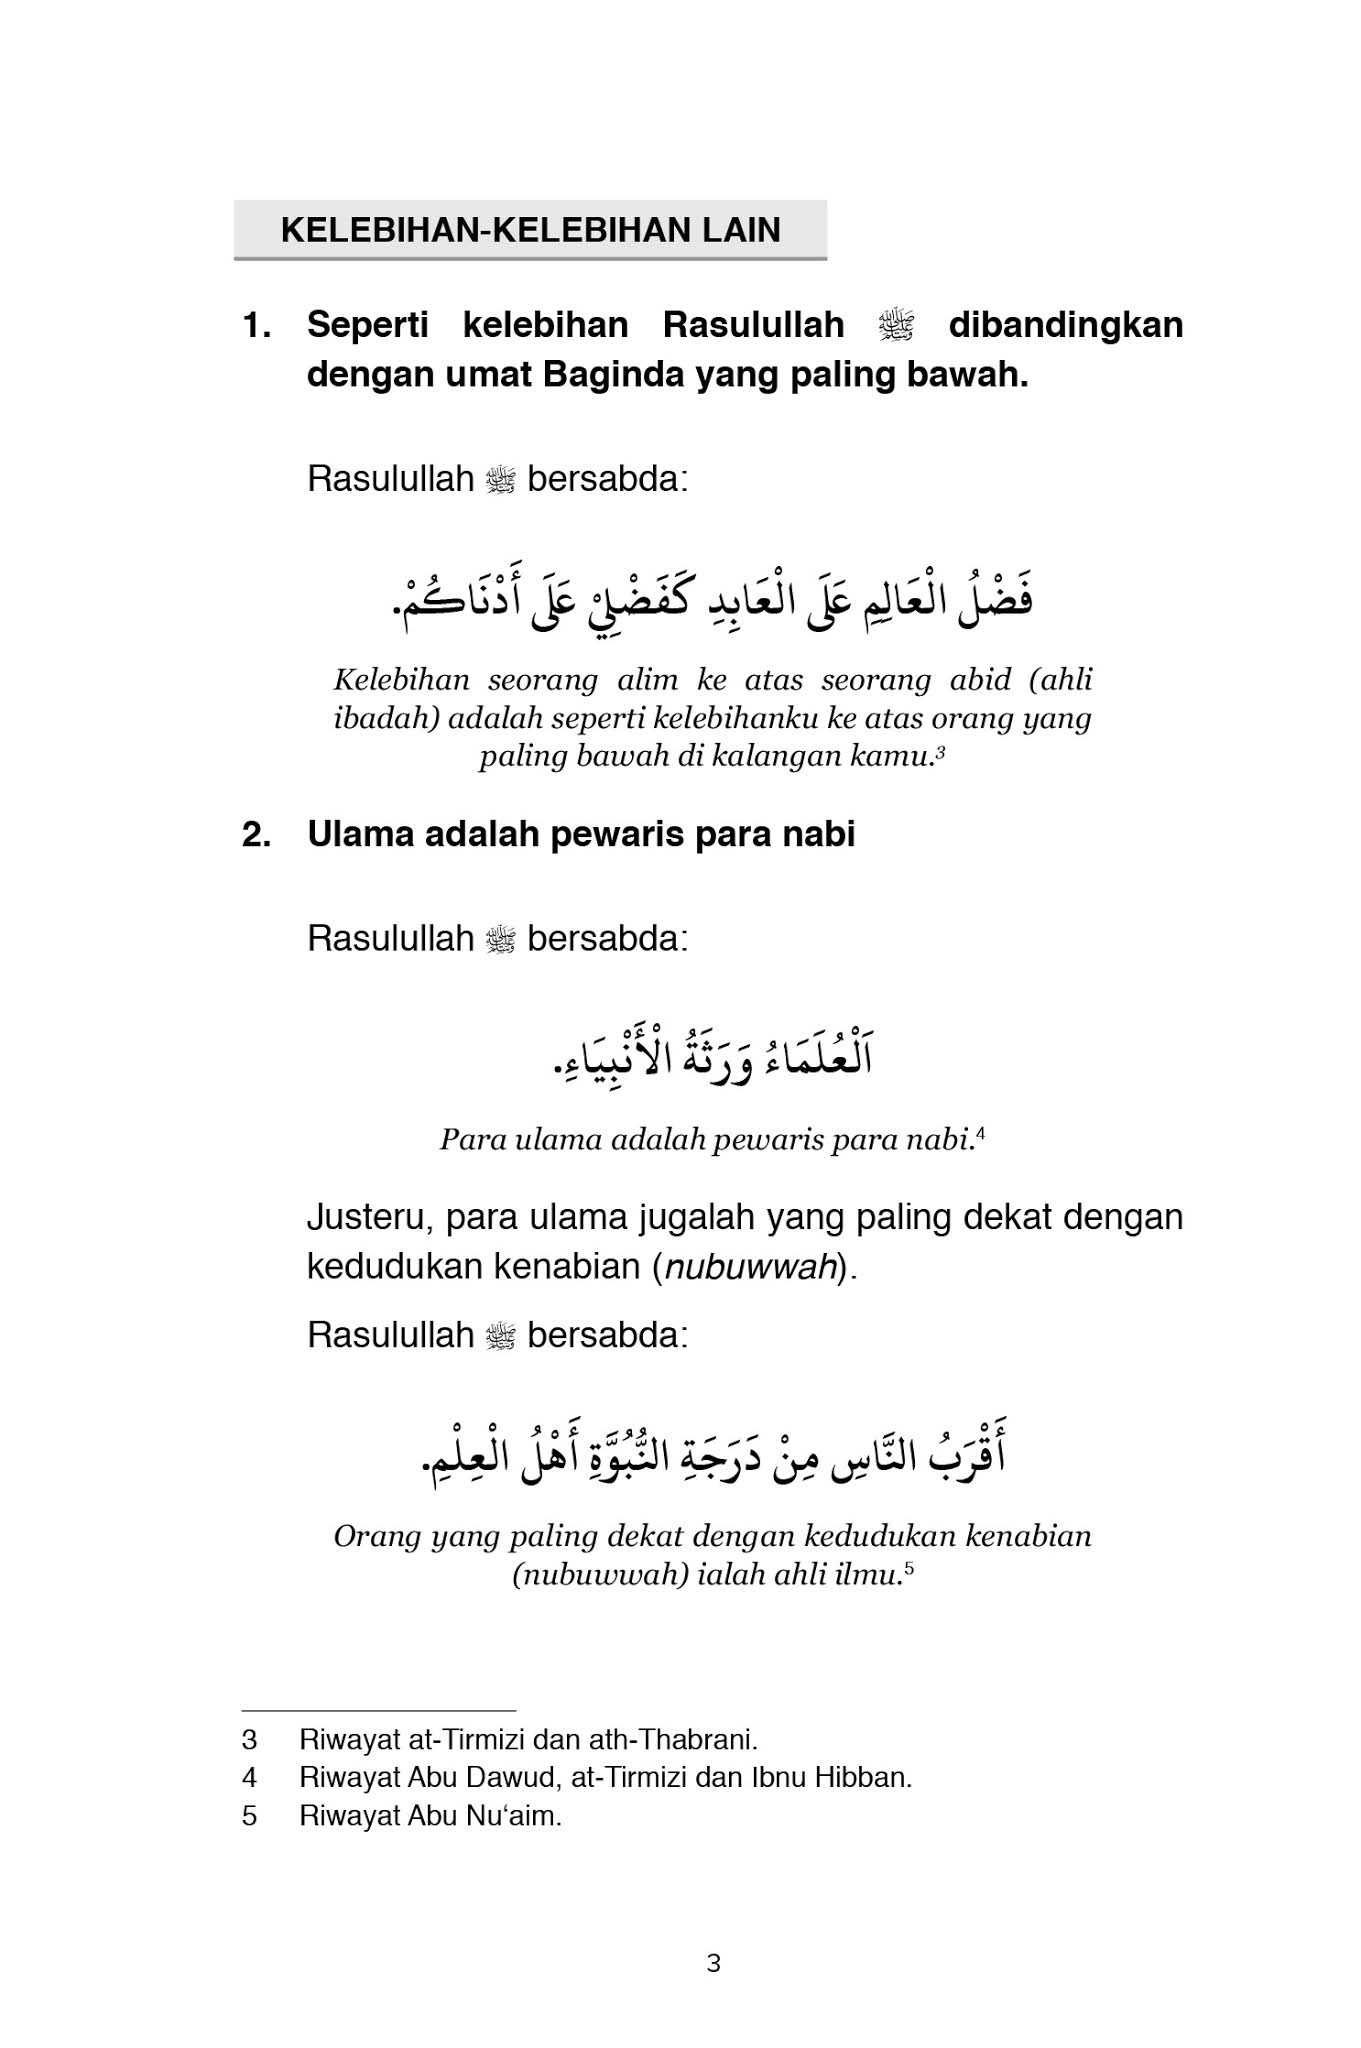 KELEBIHAN-KELEBIHAN LAIN
1. Seperti kelebihan Rasulullah ﷺ dibandingkan
dengan umat Baginda yang paling bawah.
Rasulullah ﷺ bersabda:
فَضْلُ الْعَالِمِ عَلَى الْعَابِدِ كَفَضْلِيْ عَلَى أَدْنَاكُمْ.
Kelebihan seorang alim ke atas seorang abid (ahli
ibadah) adalah seperti kelebihanku ke atas orang yang
paling bawah di kalangan kamu.³
2. Ulama adalah pewaris para nabi
Rasulullah ﷺ bersabda:
اَلْعُلَمَاءُ وَرَثَةُ الْأَنْبِيَاءِ.
Para ulama adalah pewaris para nabi.⁴
Justeru, para ulama jugalah yang paling dekat dengan
kedudukan kenabian (nubuwwah).
Rasulullah ﷺ bersabda:
أَقْرَبُ النَّاسِ مِنْ دَرَجَةِ النُّبُوَّةِ أَهْلُ الْعِلْمِ.
Orang yang paling dekat dengan kedudukan kenabian
(nubuwwah) ialah ahli ilmu.⁵
3 Riwayat at-Tirmizi dan ath-Thabrani.
4 Riwayat Abu Dawud, at-Tirmizi dan Ibnu Hibban.
5 Riwayat Abu Nu‘aim.
3